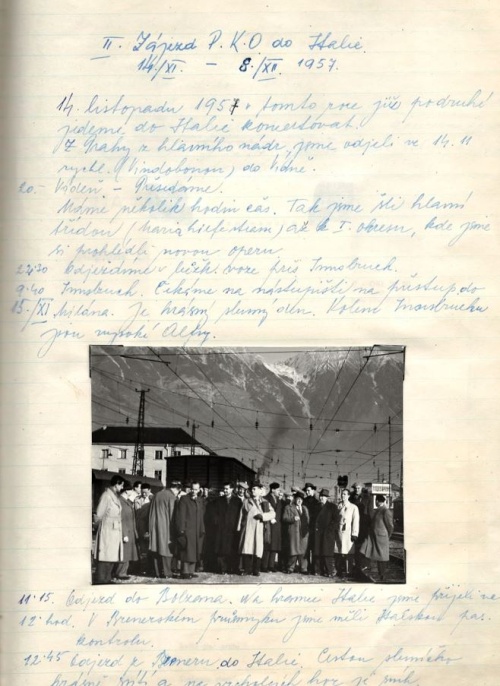 II. Zájezd P.K.O do Italie.
14./XI. – 8./XII. 1957.
14. listopadu 1957 v tomto roce již podruhé
jedeme do Italie koncertovat.
Z Prahy z hlavního nádr. jsme odjeli ve 14.11
rychl. (Vindobonou) do Vídně.
20.– Vídeň – Přisedáme.
Máme několik hodin čas. Tak jsme šli hlavní
třídou (Maria až k I. okresu, kde jsme
si prohlédli novou operu
22,30 Odjíždíme v lůžk. voze přes Innsbruch.
9.40 Innsbruch. Čekáme na nástupišti na přístup do
15./XI Milána. Je krásný slunný den. Kolem Innsbrucku
jsou vysoké Alpy.
11.15. Odjezd do Bolzana. Na hranice Italie jsme přijeli ve
12 hod. V Brenerském průsmyku jsme měli Italskou pas.
kontrolu.
12.45 Odjezd z Breneru do Italie. Cestou sluníčko
krásně svítí a na vrcholcích hor je sníh